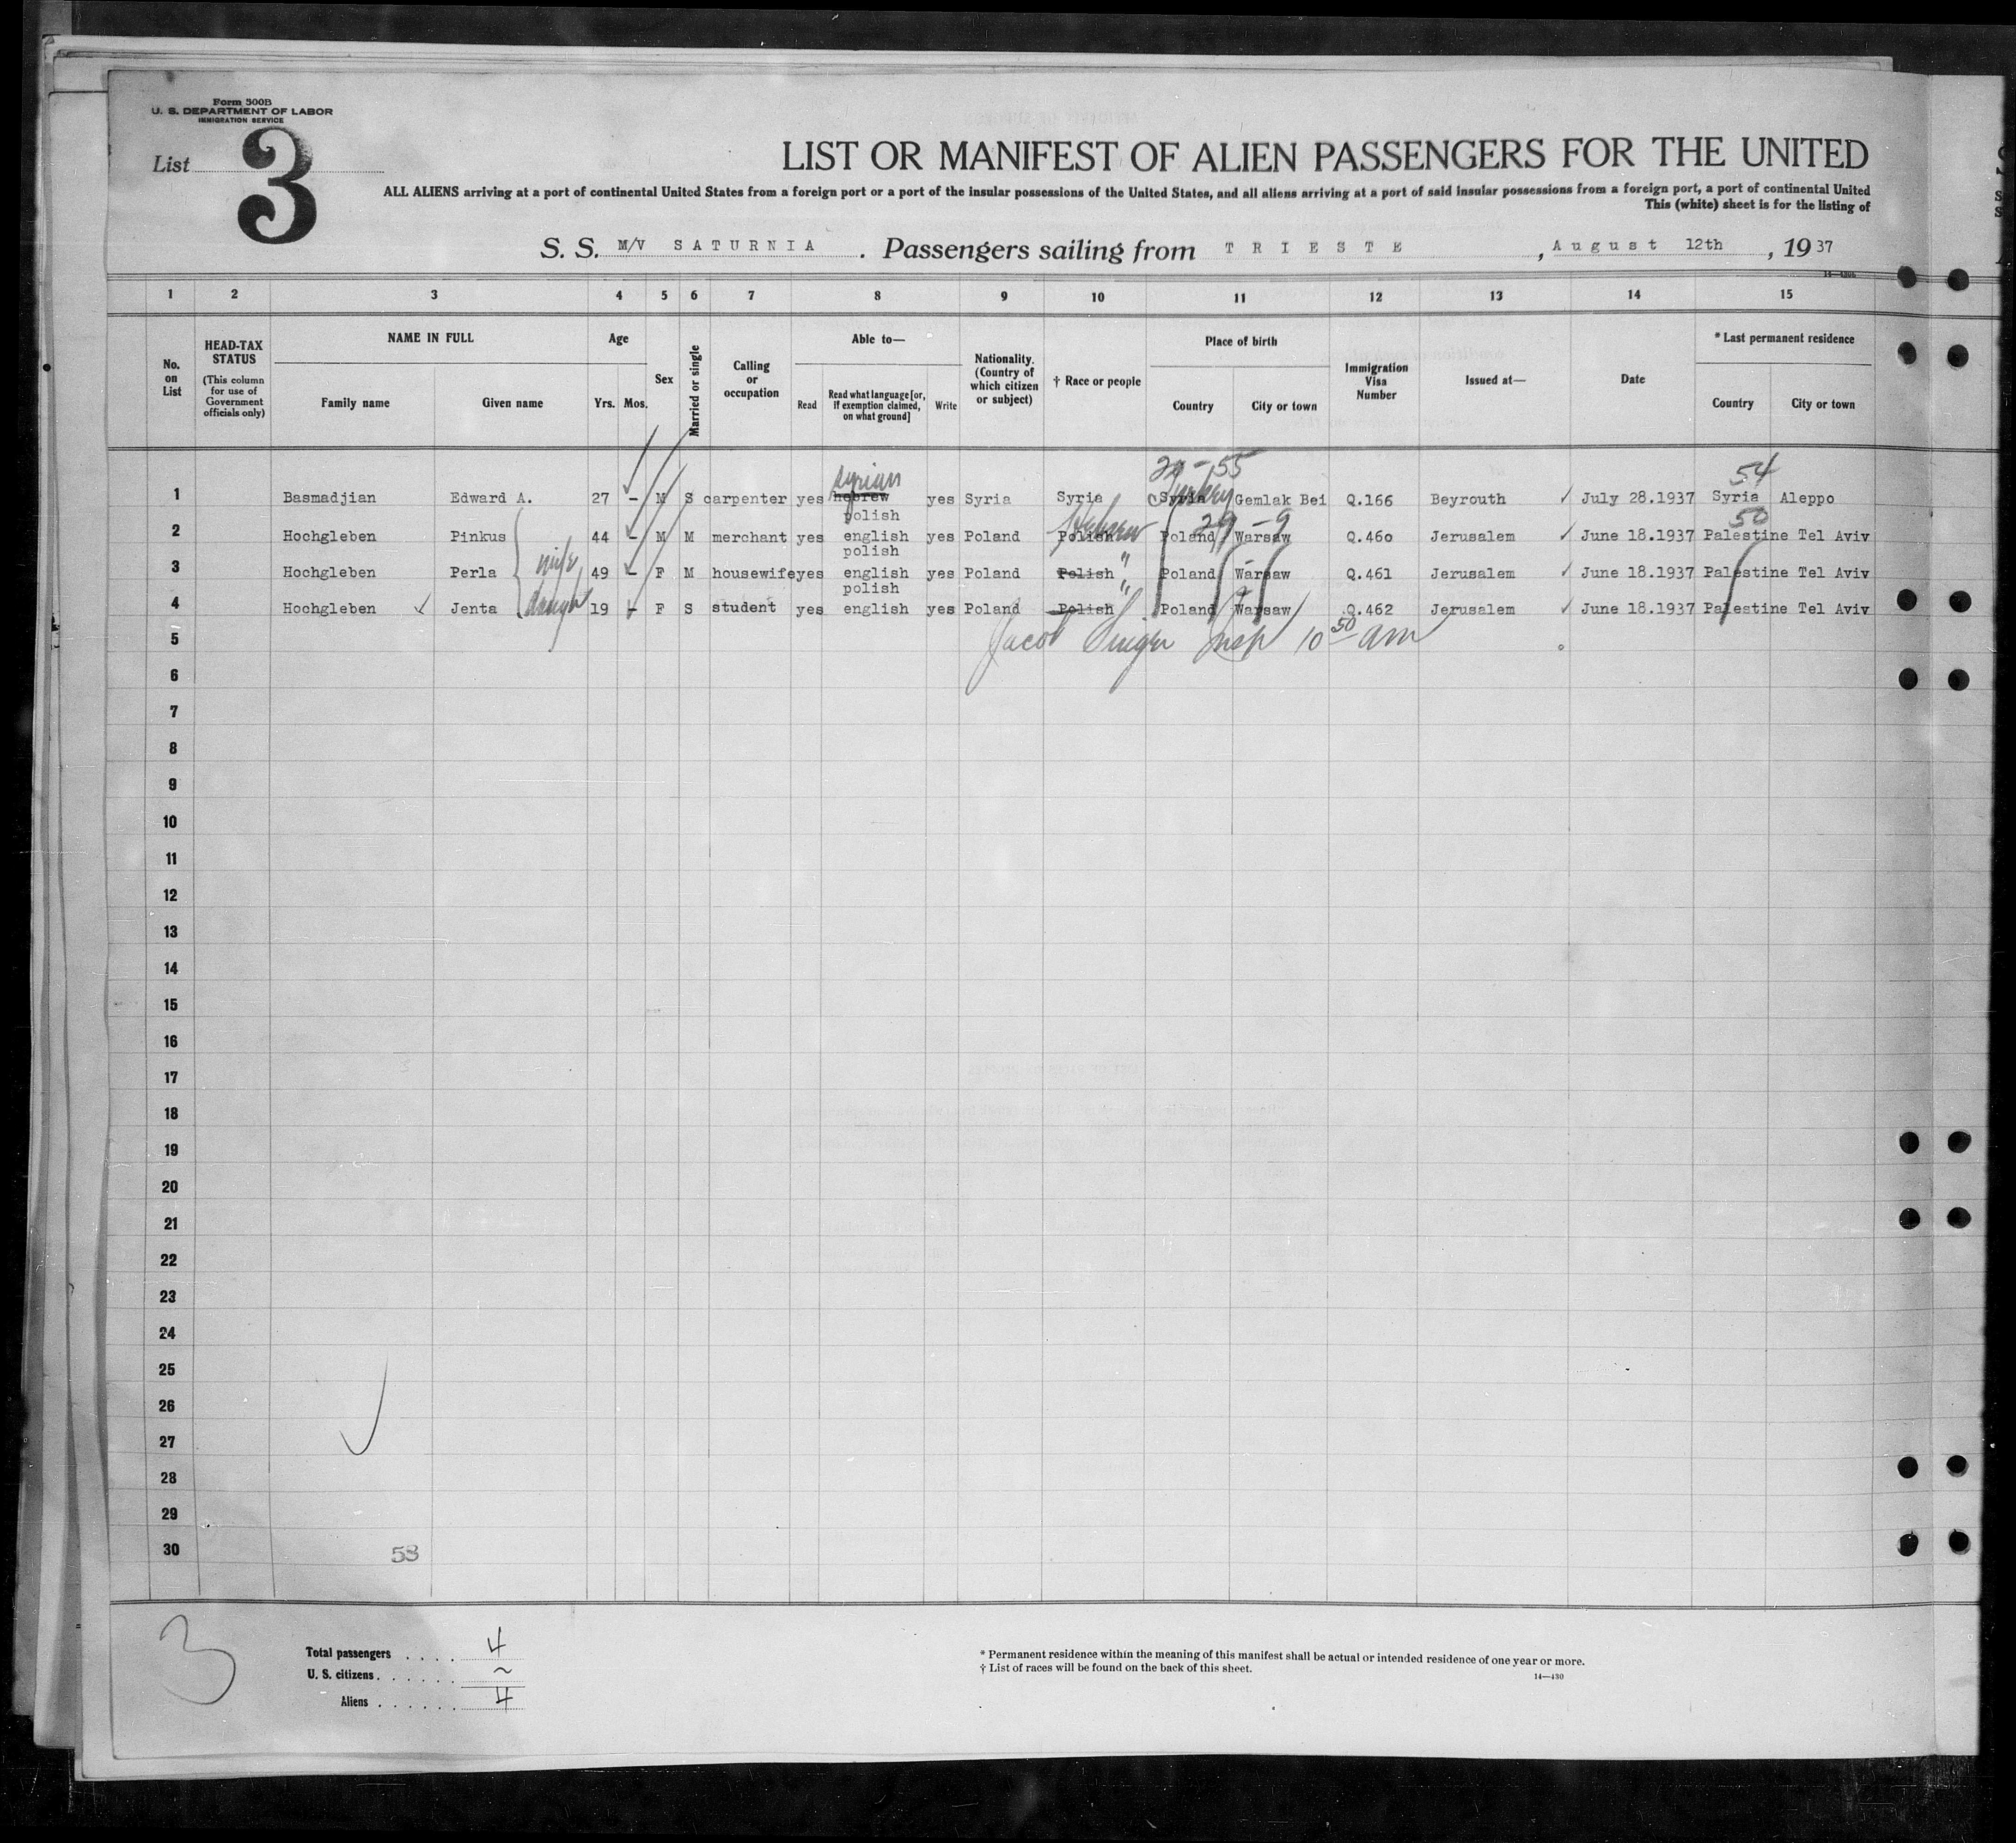 Form 500B
U. S. DEPARTMENT OF LABOR
IMMIGRATION SERVICE
List 3
LIST OR MANIFEST OF ALIEN PASSENGERS FOR THE UNITED
ALL ALIENS arriving at a port of continental United States from a foreign port or a port of the insular possessions of the United States, and all aliens arriving at a port of said insular possessions from a foreign port, a port of continental United
This (white) sheet is for the listing of
S. S. M/V SATURNIA . Passengers sailing from TRIESTE , August 12th , 19 37
1 2 3 4 5 6 7 8 9 10 11 12 13 14 15
No. on List
HEAD-TAX STATUS
(This column for use of Government officials only)
NAME IN FULL
Family name
Given name
Age
Yrs. Mos.
Sex
Married or single
Calling or occupation
Able to—
Read
Read what language [or, if exemption claimed, on what ground]
Write
Nationality. (Country of which citizen or subject)
† Race or people
Place of birth
Country
City or town
Immigration Visa Number
Issued at—
Date
* Last permanent residence
Country
City or town
syrian 29-55 54
1 Basmadjian Edward A. 27 - M S carpenter yes hebrew yes Syria Syria Syria Turkey Gemlak Bei Q.166 Beyrouth ✓ July 28.1937 Syria Aleppo
polish Hebrew 29-9 50
2 Hochgleben Pinkus 44 - M M merchant yes english yes Poland Polish Poland Warsaw Q.460 Jerusalem ✓ June 18.1937 Palestine Tel Aviv
polish
3 Hochgleben Perla wife 49 - F M housewife yes english yes Poland Polish " Poland Warsaw Q.461 Jerusalem ✓ June 18.1937 Palestine Tel Aviv
polish
4 Hochgleben ✓ Jenta daught 19 - F S student yes english yes Poland Polish " Poland Warsaw Q.462 Jerusalem ✓ June 18.1937 Palestine Tel Aviv
5 Jacob Singer Insp 10 50 am
6
7
8
9
10
11
12
13
14
15
16
17
18
19
20
21
22
23
24
25
26
27
28
29
30 53
3
Total passengers . . . . 4
U. S. citizens . . . . . . ~
Aliens . . . . . . 4
* Permanent residence within the meaning of this manifest shall be actual or intended residence of one year or more.
† List of races will be found on the back of this sheet.
14—430